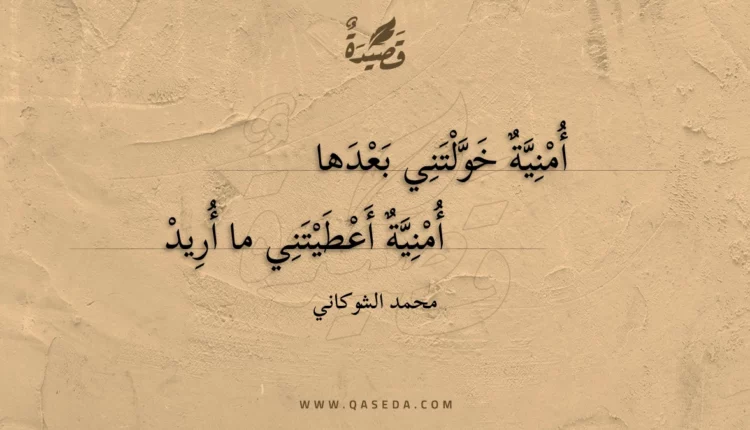 قَصِيدَةٌ
أُمْنِيَّةٌ خَوَّلْتَنِي بَعْدَها
أُمْنِيَّةٌ أَعْطَيْتَنِي ما أُرِيدْ
محمد الشوكاني
WWW.QASEDA.COM